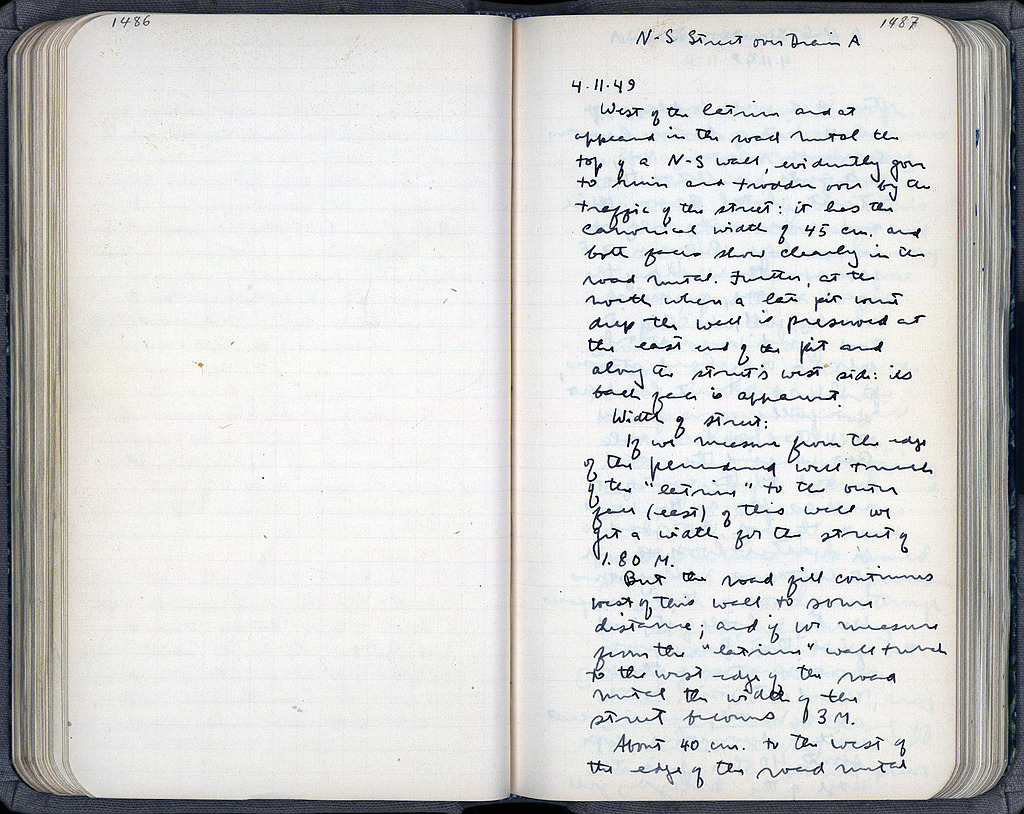 1486
1487
N-S Street over Drain A
4.11.49
West of the latrine and at
appeared in the road metal the
top of a N-S wall, evidently gone
to ruin and trodden over by the
traffic of the street: it has the
canonical width of 45 cm. and
both faces show clearly in the
road metal. Further, at the
north where a late pit went
deep the wall is preserved at
the east end of the pit and
along the street's west side: its
back face is apparent.
Width of street:
If we measure from the edge
of the plundered wall trench
of the "latrine" to the outer
face (east) of this wall we
get a width for the street of
1.80 M.
But the road fill continues
west of this wall to some
distance; and if we measure
from the "latrine" wall trench
to the west edge of the road
metal the width of the
street becomes 3 M.
About 40 cm. to the west of
the edge of the road metal